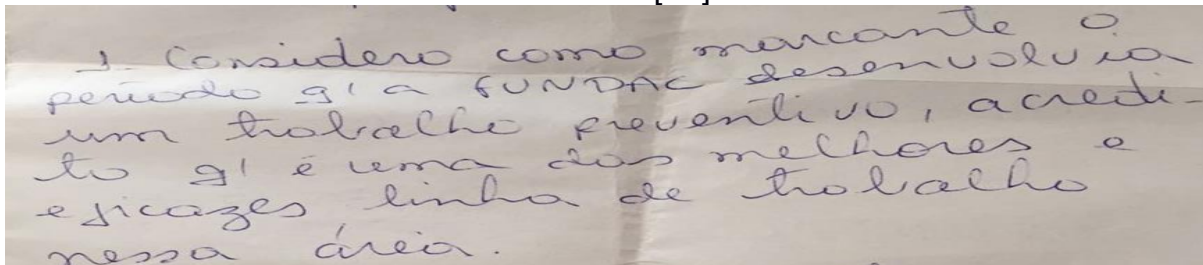 1. Considero como marcante o
período q' a FUNDAC desenvolvia
um trabalho preventivo, acredi-
to q' é uma das melhores e
eficazes linha de trabalho
nessa área.